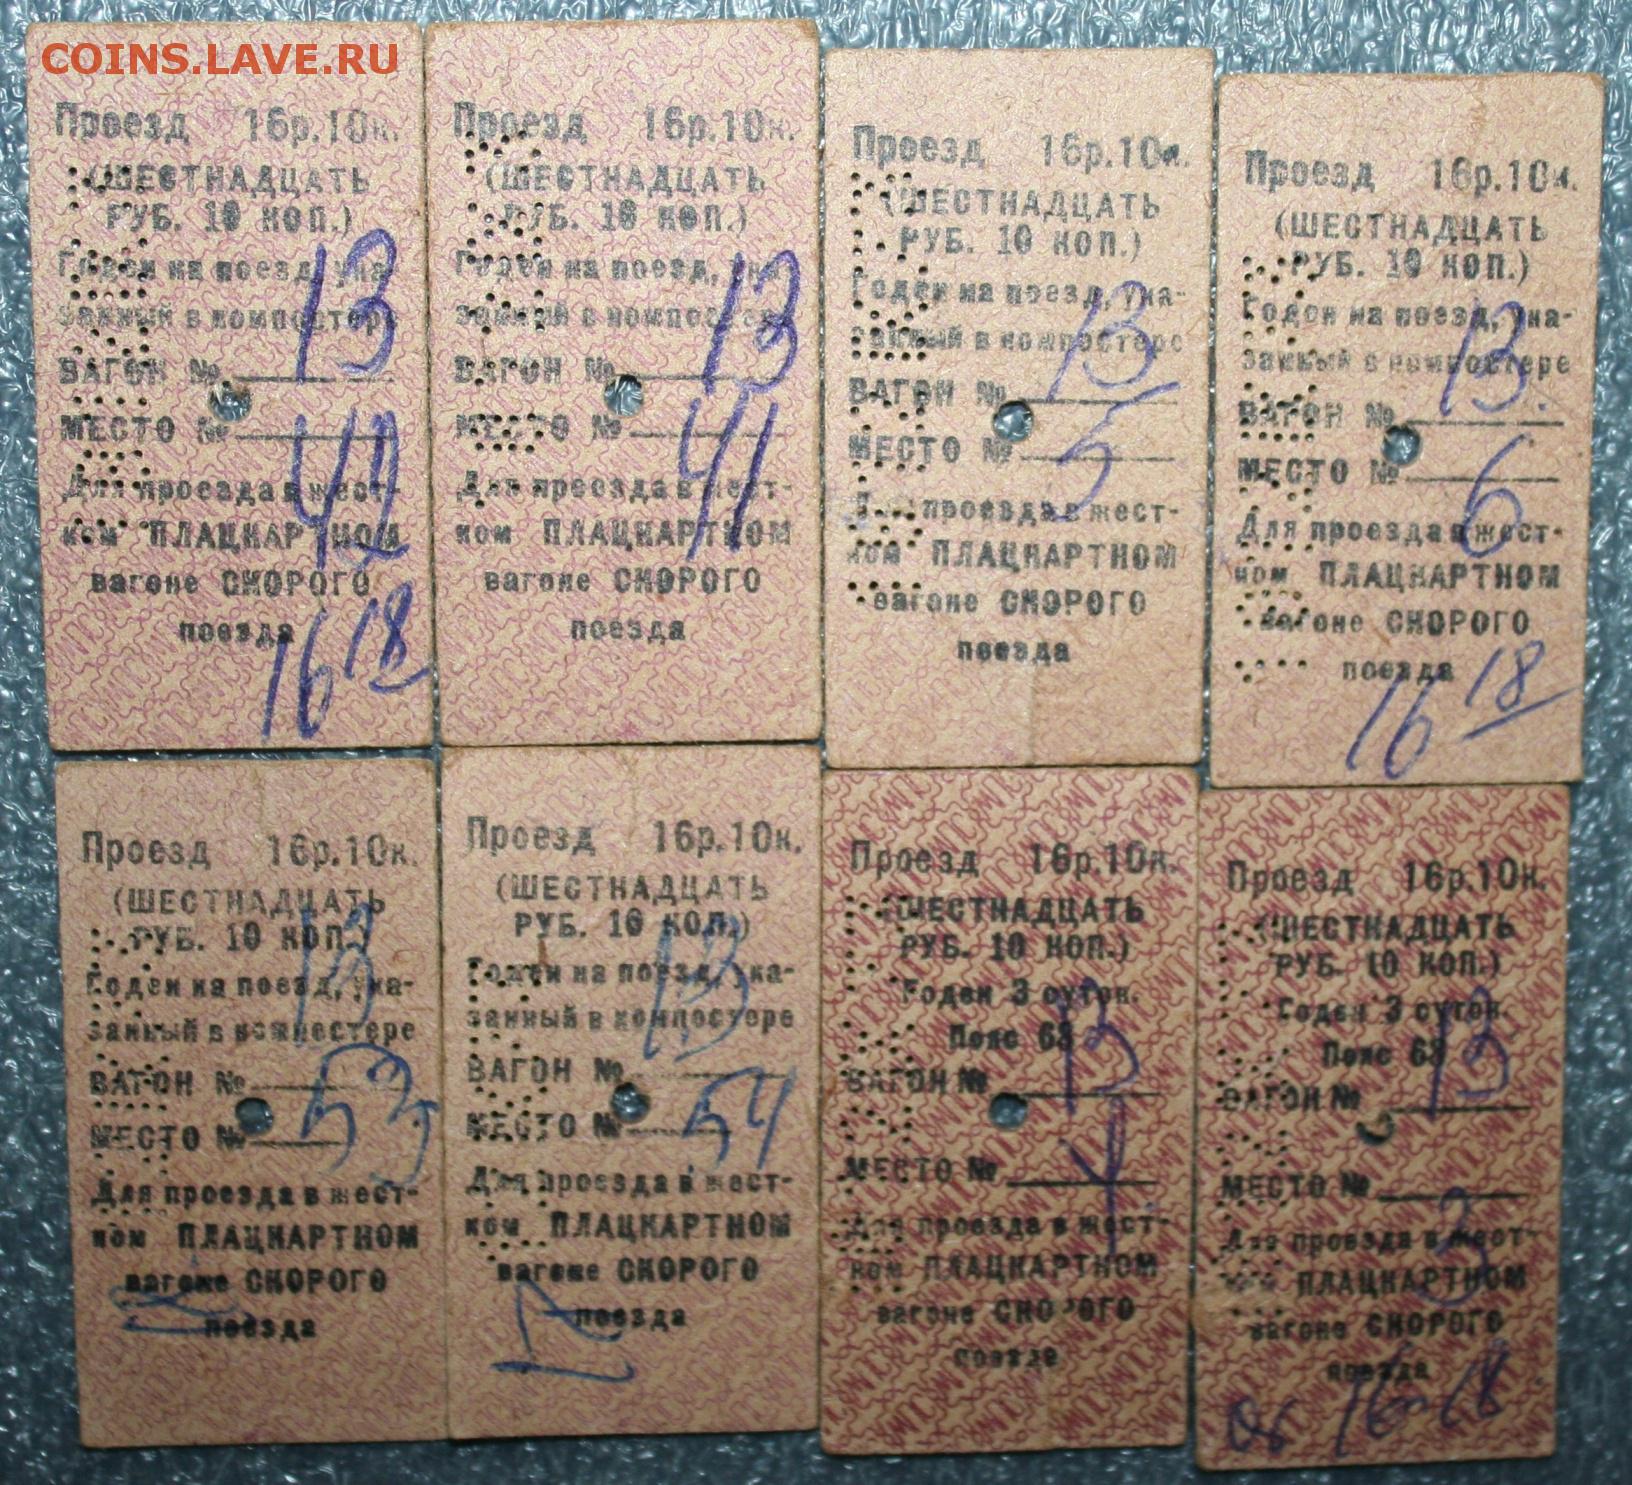 COINS.LAVE.RU
Проезд 16р.10к.
(ШЕСТНАДЦАТЬ
РУБ. 10 КОП.)
Годен на поезд, ука-
занный в компостере
ВАГОН № 13
МЕСТО № 42
Для проезда в жест-
ком ПЛАЦКАРТНОМ
вагоне СКОРОГО
поезда
16 18
Проезд 16р.10к.
(ШЕСТНАДЦАТЬ
РУБ. 10 КОП.)
Годен на поезд, ука-
занный в компостере
ВАГОН № 13
МЕСТО № 41
Для проезда в жест-
ком ПЛАЦКАРТНОМ
вагоне СКОРОГО
поезда
Проезд 16р.10к.
(ШЕСТНАДЦАТЬ
РУБ. 10 КОП.)
Годен на поезд, ука-
занный в компостере
ВАГОН № 13
МЕСТО № 5
Для проезда в жест-
ком ПЛАЦКАРТНОМ
вагоне СКОРОГО
поезда
Проезд 16р.10к.
(ШЕСТНАДЦАТЬ
РУБ. 10 КОП.)
Годен на поезд, ука-
занный в компостере
ВАГОН № 13.
МЕСТО № 6
Для проезда в жест-
ком ПЛАЦКАРТНОМ
вагоне СКОРОГО
поезда
16 18
Проезд 16р.10к.
(ШЕСТНАДЦАТЬ
РУБ. 10 КОП.)
Годен на поезд, ука-
занный в компостере
ВАГОН № 13
МЕСТО № 53
Для проезда в жест-
ком ПЛАЦКАРТНОМ
вагоне СКОРОГО
поезда
Проезд 16р.10к.
(ШЕСТНАДЦАТЬ
РУБ. 10 КОП.)
Годен на поезд, ука-
занный в компостере
ВАГОН № 13
МЕСТО № 54
Для проезда в жест-
ком ПЛАЦКАРТНОМ
вагоне СКОРОГО
поезда
Проезд 16р.10к.
(ШЕСТНАДЦАТЬ
РУБ. 10 КОП.)
Годен 3 суток.
Пояс 68
ВАГОН № 13
МЕСТО № 4
Для проезда в жест-
ком ПЛАЦКАРТНОМ
вагоне СКОРОГО
поезда
Проезд 16р.10к.
(ШЕСТНАДЦАТЬ
РУБ. 10 КОП.)
Годен 3 суток.
Пояс 68
ВАГОН № 13
МЕСТО № 3
Для проезда в жест-
ком ПЛАЦКАРТНОМ
вагоне СКОРОГО
поезда
16-18